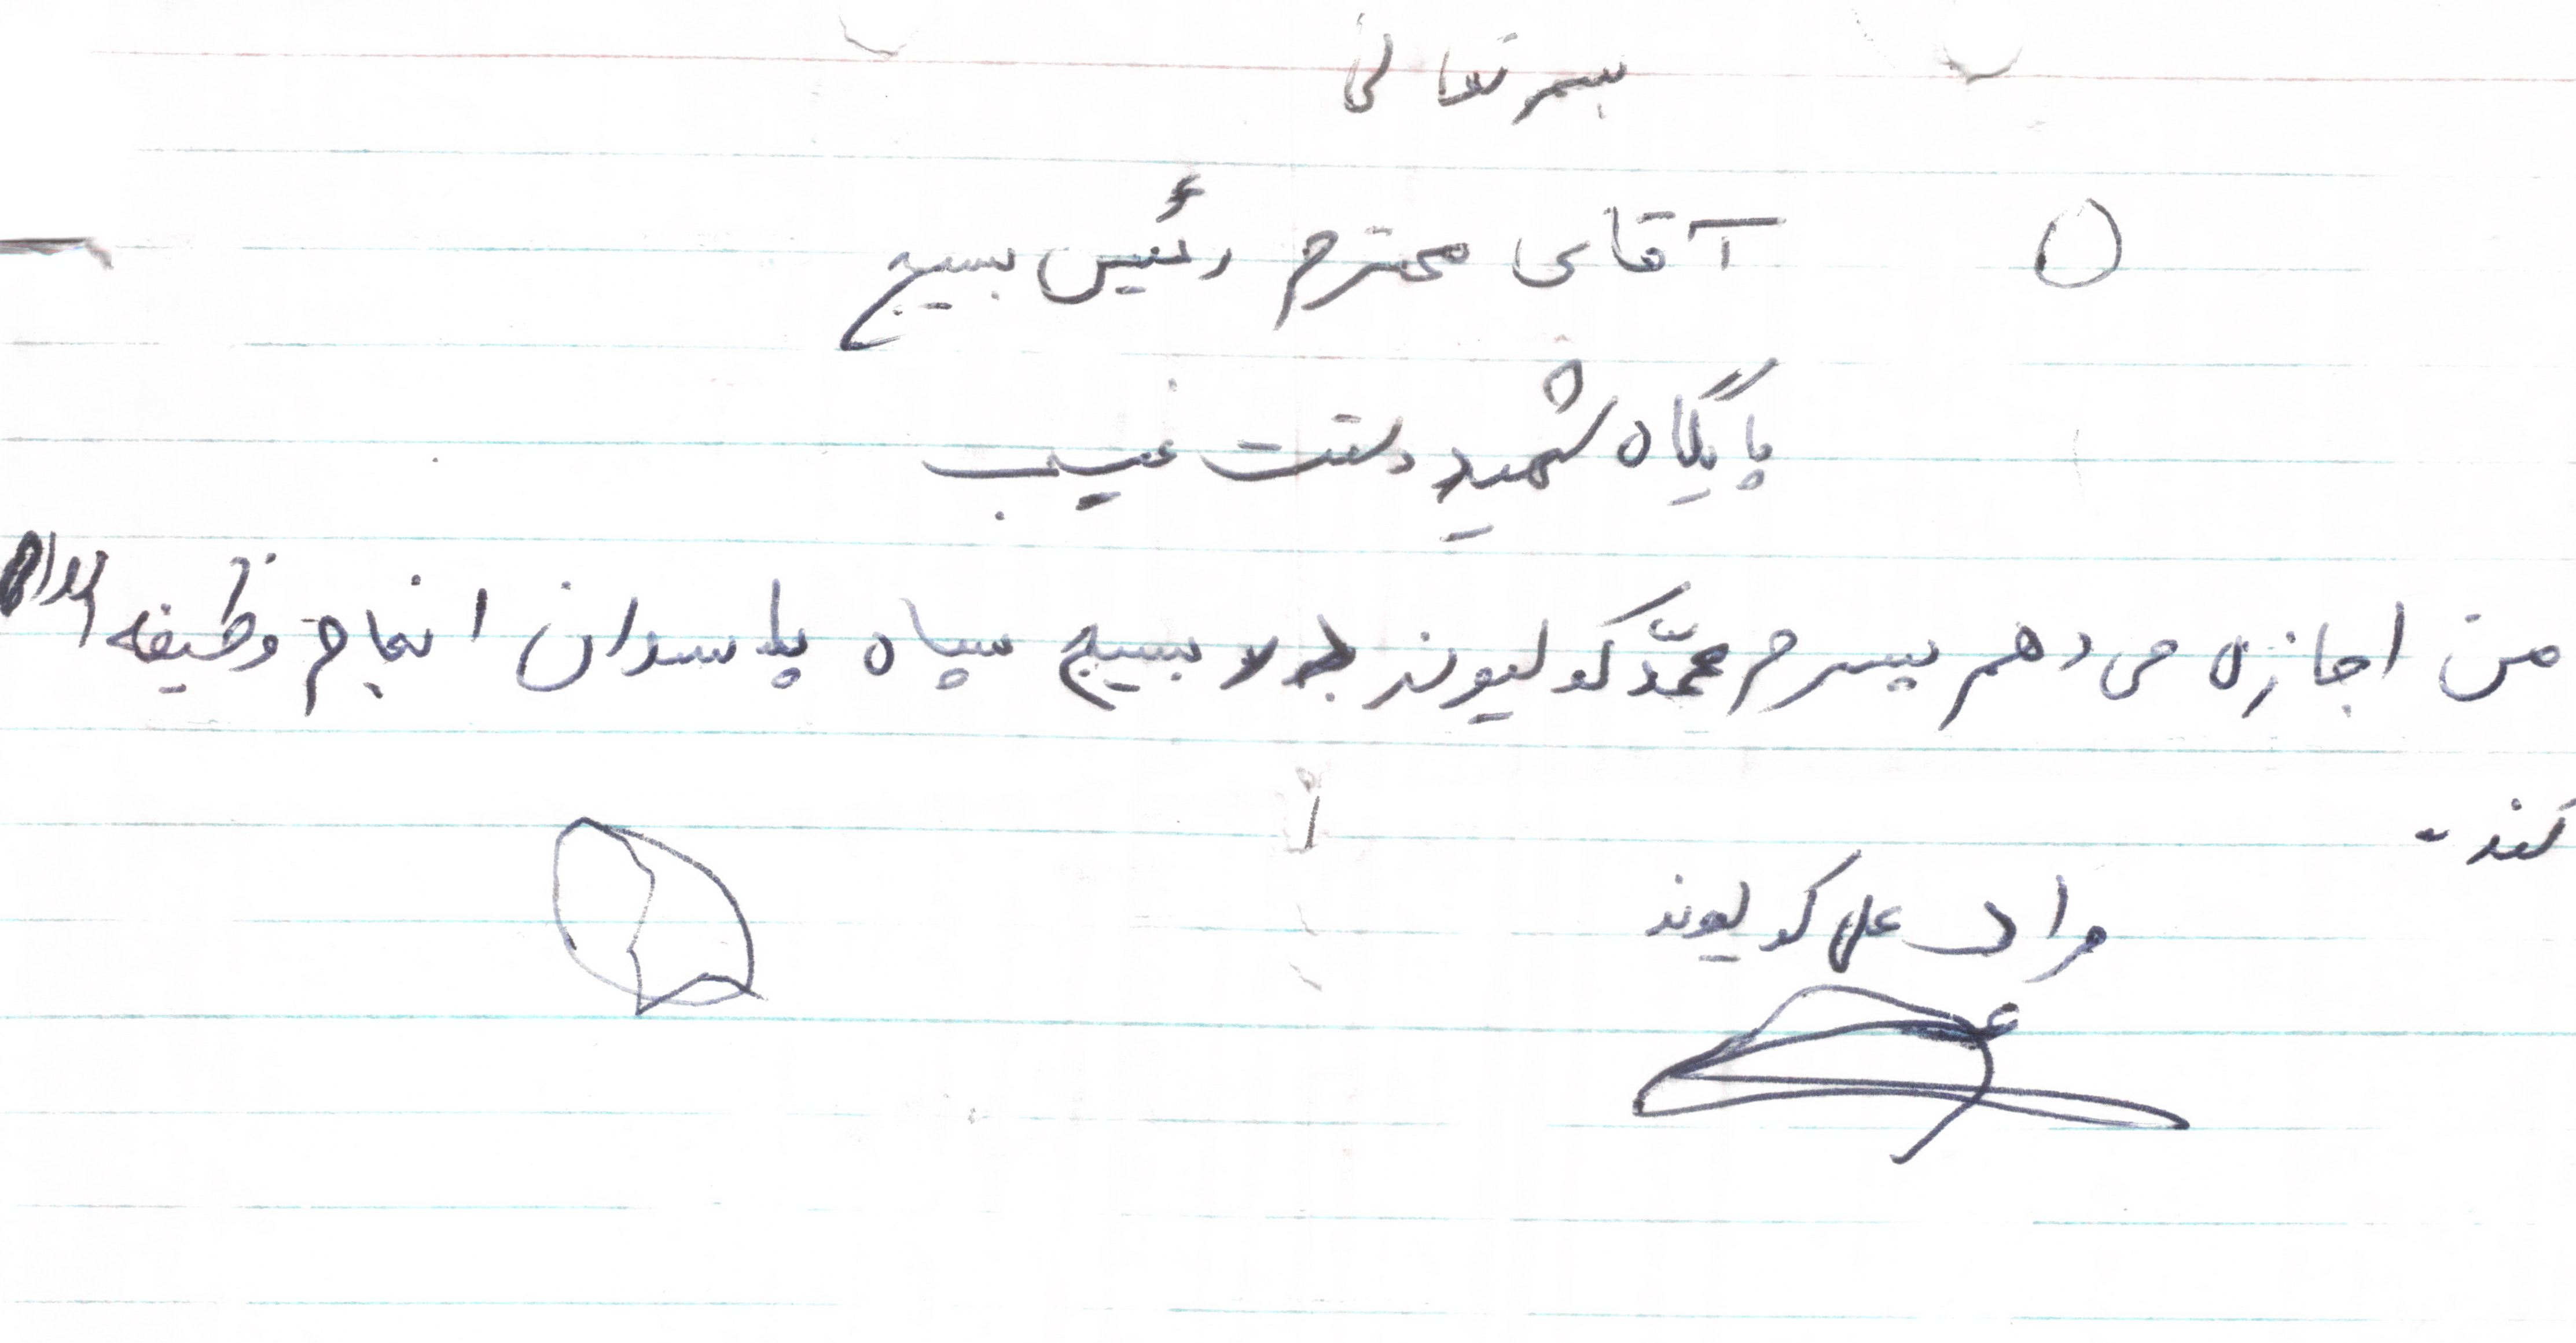 بسمه تعالی
آقای محترم رئیس بسیج
پایگاه شهید دستغیب
من اجازه می دهم پسرم محمّد کولیوند در بسیج سپاه پاسداران انجام وظیفه
کند
مراد علی کولیوند